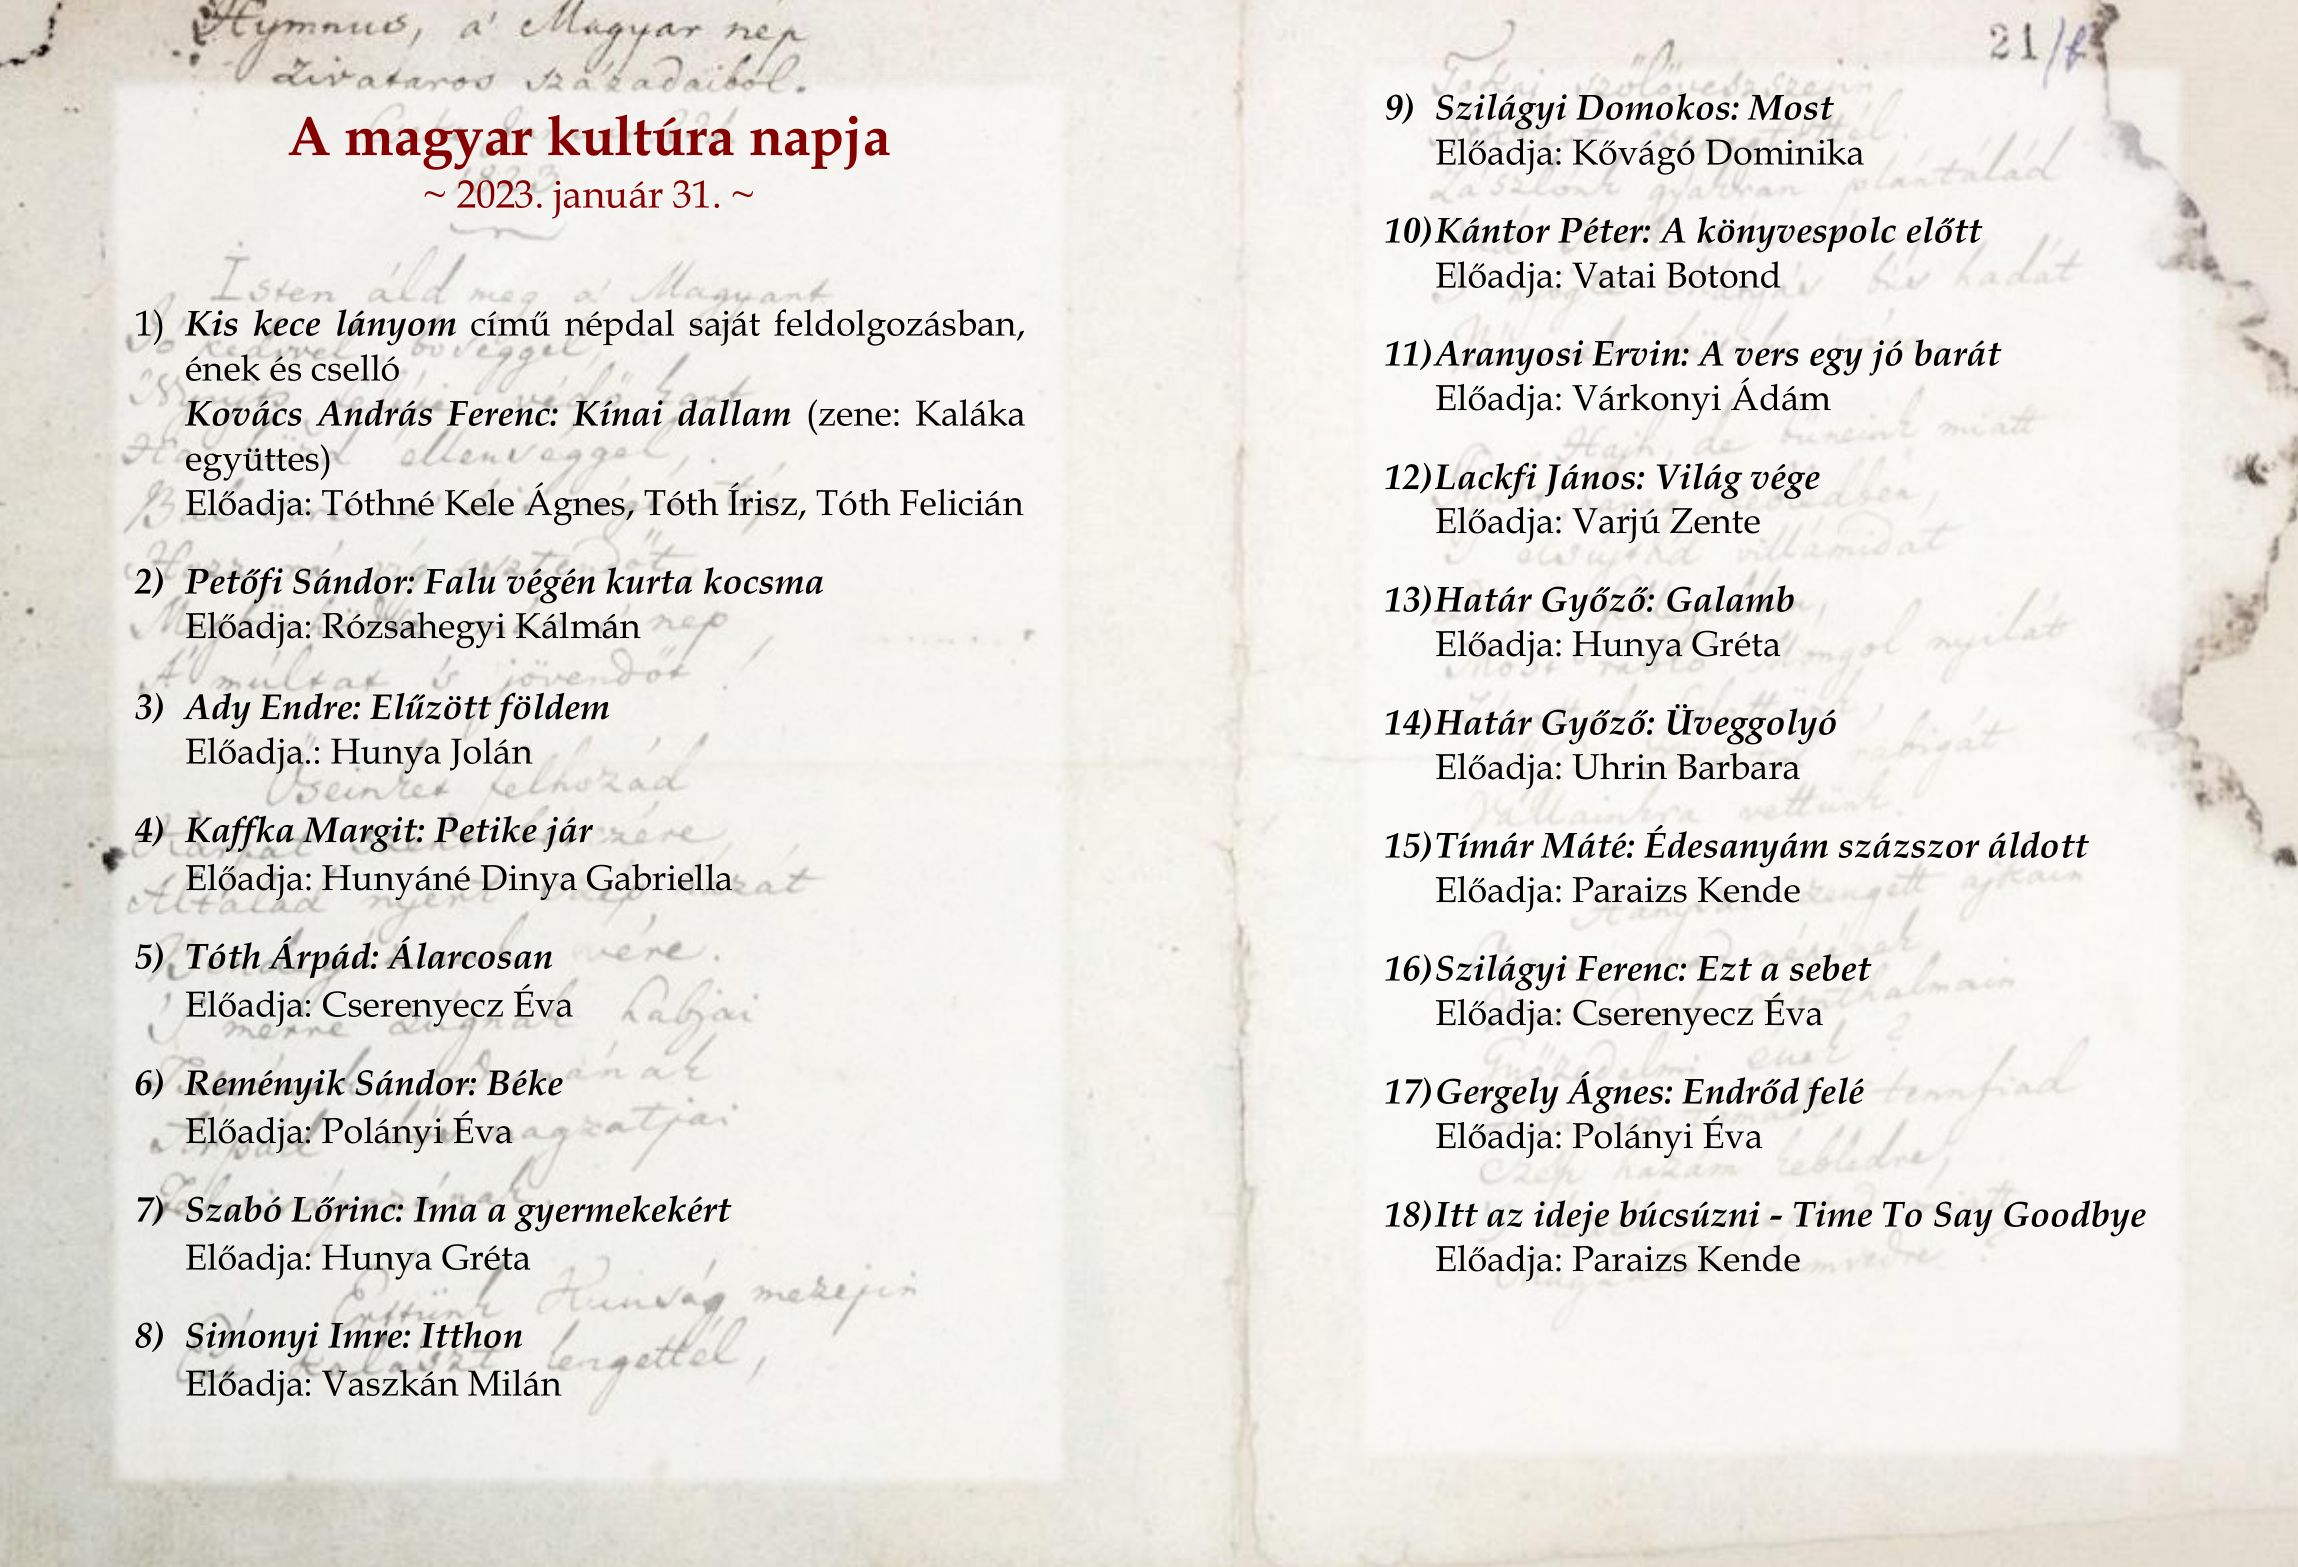 Hymnus, a' Magyar nép
zivataros századaiból.
A magyar kultúra napja
~ 2023. január 31. ~
Isten áld meg a' Magyart
1) Kis kece lányom című népdal saját feldolgozásban,
ének és cselló
Kovács András Ferenc: Kínai dallam (zene: Kaláka
együttes)
Előadja: Tóthné Kele Ágnes, Tóth Írisz, Tóth Felicián
2) Petőfi Sándor: Falu végén kurta kocsma
Előadja: Rózsahegyi Kálmán
3) Ady Endre: Elűzött földem
Előadja.: Hunya Jolán
4) Kaffka Margit: Petike jár
Előadja: Hunyáné Dinya Gabriella
5) Tóth Árpád: Álarcosan
Előadja: Cserenyecz Éva
6) Reményik Sándor: Béke
Előadja: Polányi Éva
7) Szabó Lőrinc: Ima a gyermekekért
Előadja: Hunya Gréta
8) Simonyi Imre: Itthon
Előadja: Vaszkán Milán
21/
9) Szilágyi Domokos: Most
Előadja: Kővágó Dominika
10) Kántor Péter: A könyvespolc előtt
Előadja: Vatai Botond
11) Aranyosi Ervin: A vers egy jó barát
Előadja: Várkonyi Ádám
12) Lackfi János: Világ vége
Előadja: Varjú Zente
13) Határ Győző: Galamb
Előadja: Hunya Gréta
14) Határ Győző: Üveggolyó
Előadja: Uhrin Barbara
15) Tímár Máté: Édesanyám százszor áldott
Előadja: Paraizs Kende
16) Szilágyi Ferenc: Ezt a sebet
Előadja: Cserenyecz Éva
17) Gergely Ágnes: Endrőd felé
Előadja: Polányi Éva
18) Itt az ideje búcsúzni - Time To Say Goodbye
Előadja: Paraizs Kende